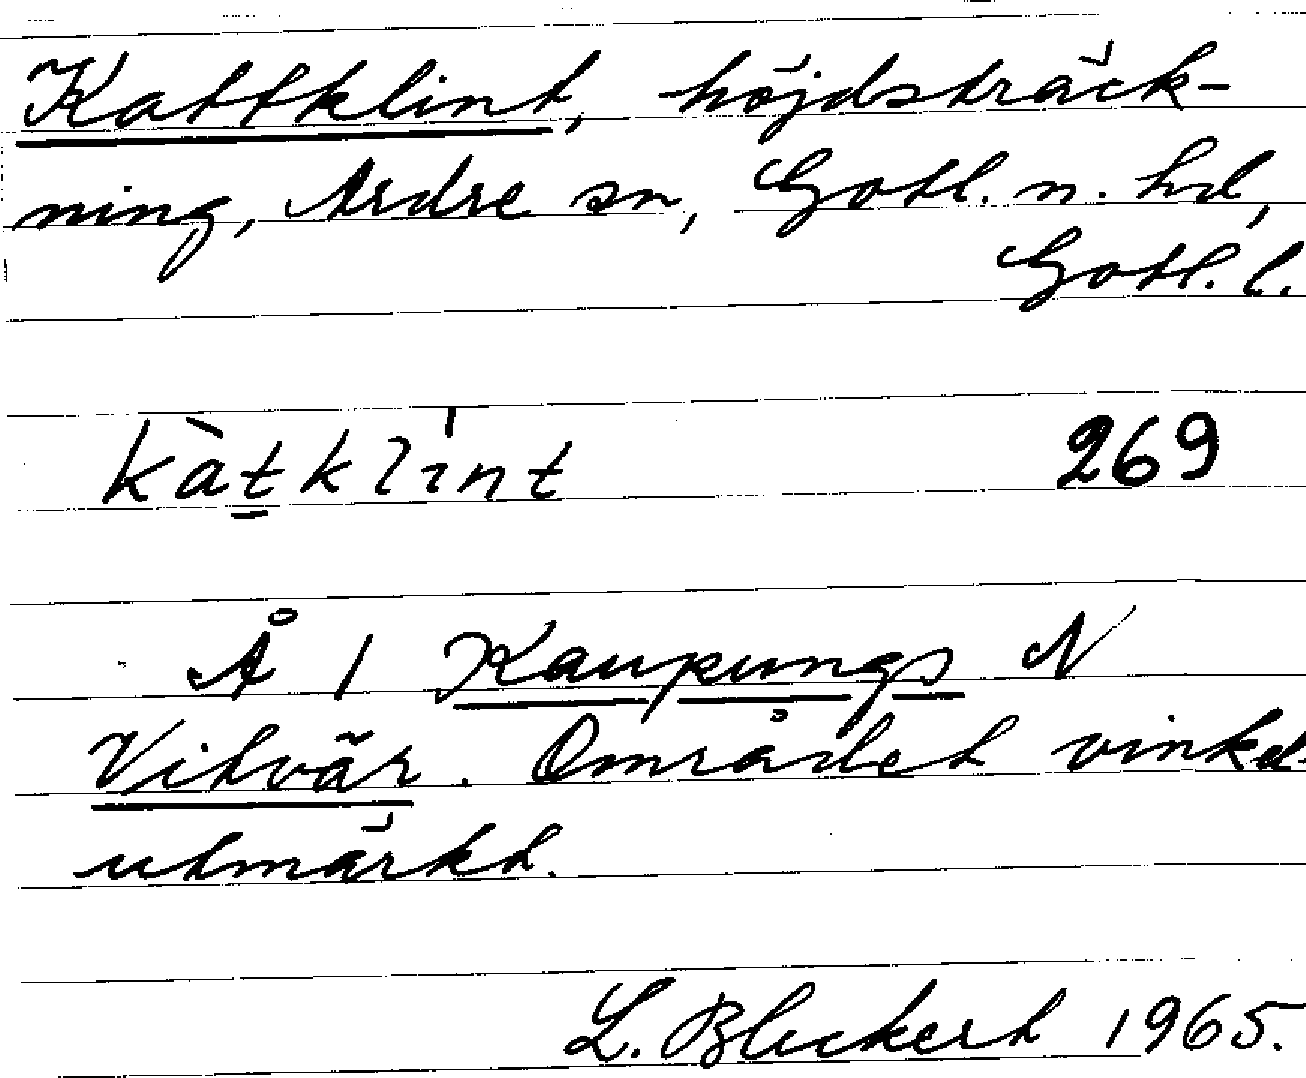 Kattklint, höjdsträck-
ning, Ardre sn, Gotl. n. hd,
Gotl. l.
kàtklint 269
Å 1 Kaupungs N
Vitvär. Området vinkel-
utmärkt.
L. Bleckert 1965.